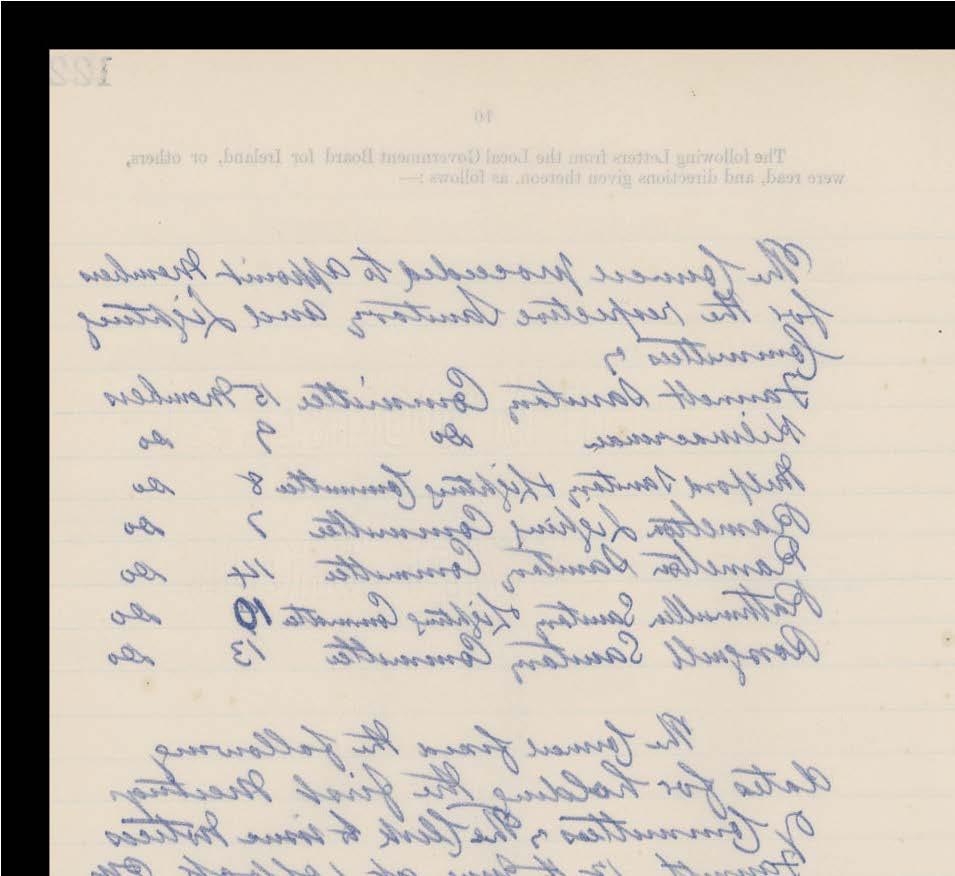 122
10
The following Letters from the Local Government Board for Ireland, or others,
were read, and directions given thereon, as follows :—
The Council proceeded to appoint Members
for the respective Sanitary and Lighting
Committees,
Fannett Sanitary Committee 15 Members
Kilmacrenan do 9 do
Milford Sanitary Lighting Committee 8 do
Ramelton Lighting Committee 7 do
Ramelton Sanitary Committee 14 do
Rathmullan Sanitary Lighting Committee 10 do
Rosguill Sanitary Committee 13 do
The Council fixed the following
dates for holding the first meetings
of Committees, the Clerk to issue notices